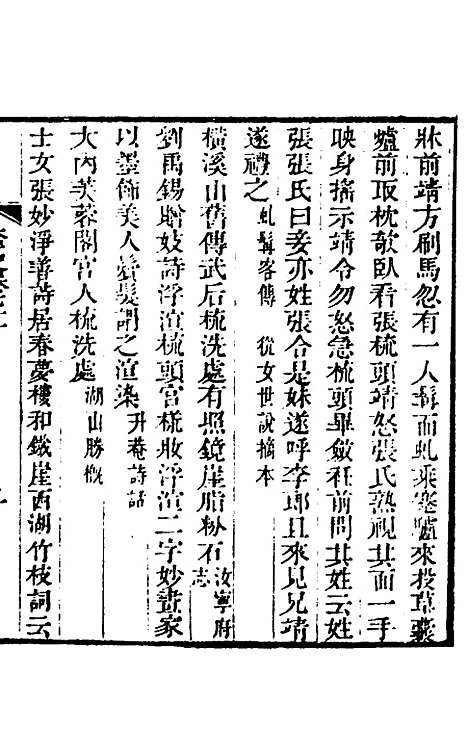 牀前靖方刷馬忽有一人髯而虬乘蹇驢來投草囊
爐前取枕欹臥看張梳頭靖怒張氏熟視其面一手
映身搖示靖令勿怒急梳頭畢斂衽前問其姓云姓
張張氏曰妾亦姓張合是妹遂呼李郎且來見兄靖
遂禮之 虬髯客傳 從女世說摘本
橫溪山舊傳武后梳洗處有照鏡崖脂粉石 汝寧府志
劉禹錫贈妓詩浮渲梳頭宮樣妝浮渲二字妙畫家
以墨飾美人鬢髮謂之渲染 升菴詩話
大內芙蓉閣宮人梳洗處 湖山勝概
士女張妙淨善詩居春夢樓和鐵崖西湖竹枝詞云